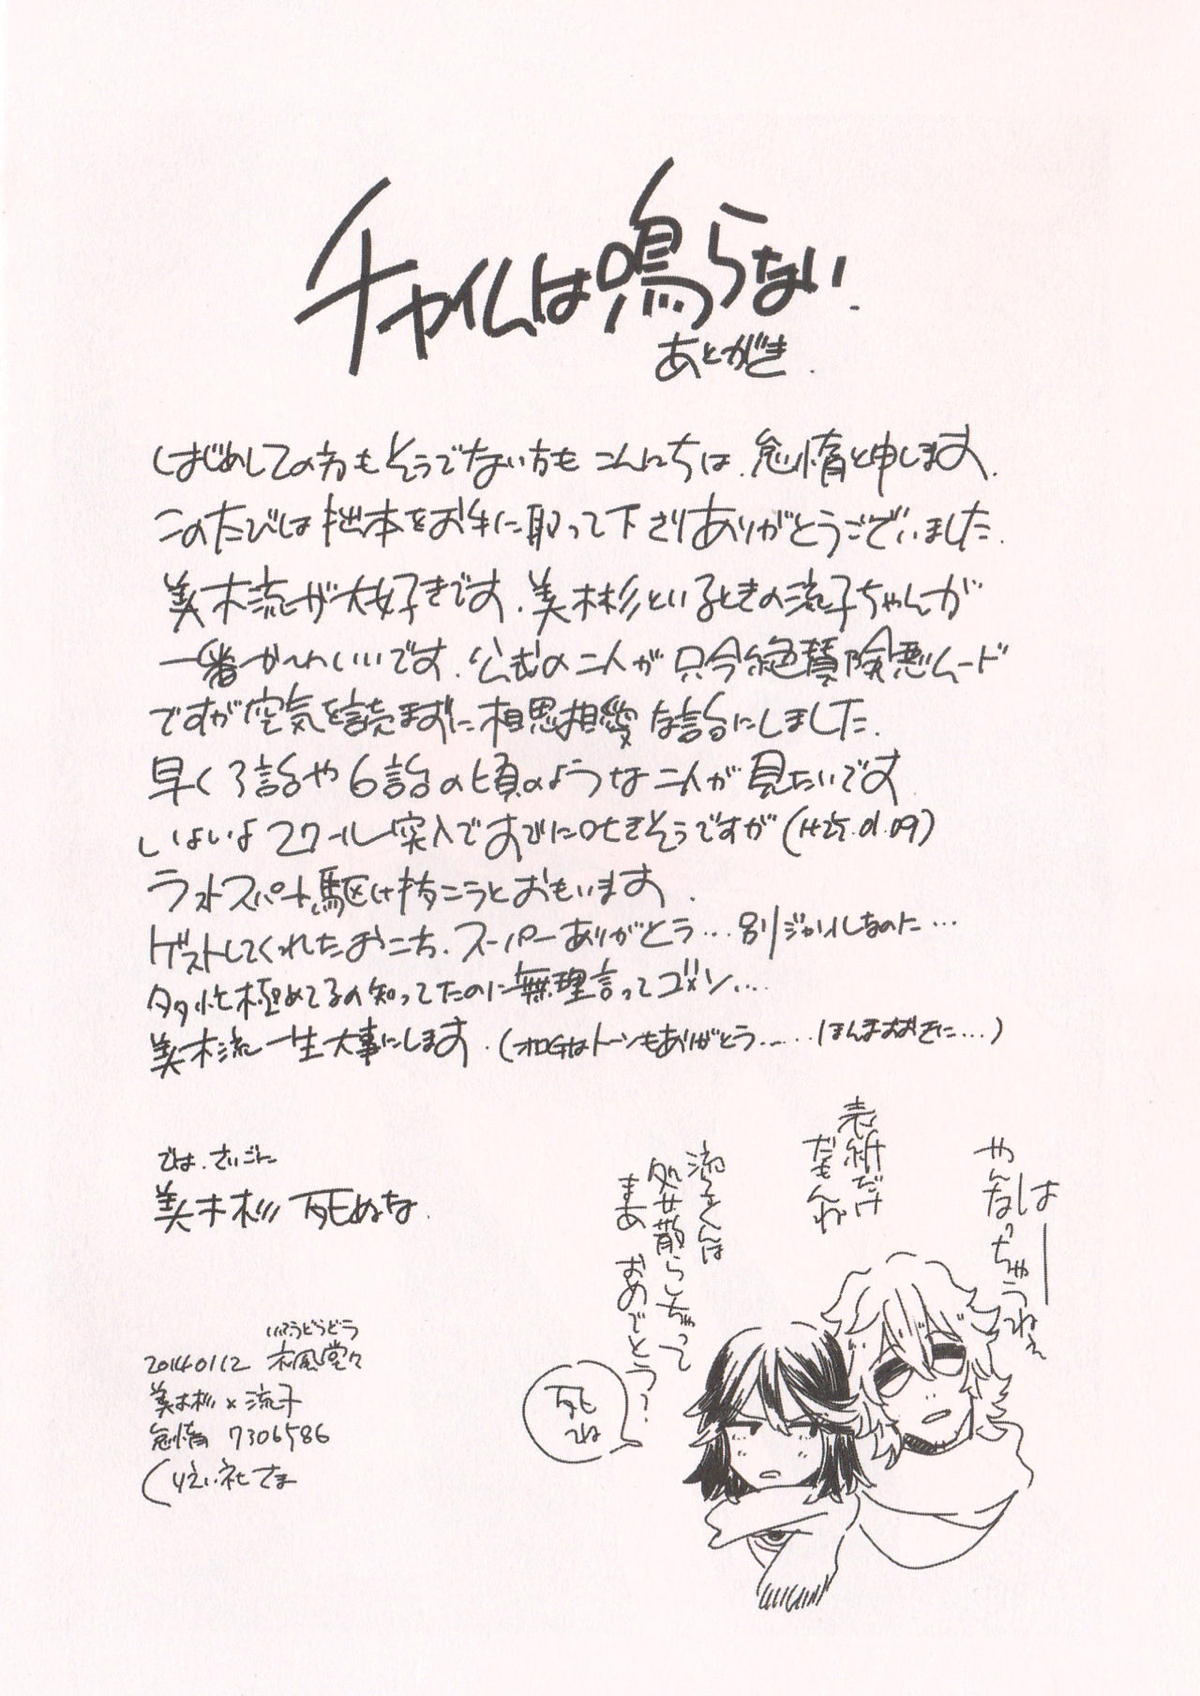 チャイムは鳴らない.
あとがき.
はじめましての方もそうでない方もこんにちは.怠惰と申します.
このたびは拙本をお手に取って下さりありがとうございました.
美木流が大好きです.美木杉といるときの流子ちゃんが
一番かわいいです.公式の二人が只今絶賛険悪ムード
ですが空気を読まずに相思相愛な話にしました.
早く3話や6話の頃のような二人が見たいです
いよいよ2クール突入ですでに吐きそうですが(H25.01.09)
ラストスパート駆け抜こうとおもいます.
ゲストしてくれたおこち.スーパーありがとう…別ジャンルなのに…
多忙極めてるの知ってたのに無理言ってゴメン…
美木流一生大事にします.(トーンもありがとう……ほんまおおきに…)
では.さいごに
美木杉 死ぬな.
いふうどうどう
20140112 木風堂々
美木杉×流子
怠惰 7306586
くりえい社さま
はー
やんなっちゃうねぇ
表紙だけ
だもんね
流子くんは
処女散らしちゃって
まあ おめでとう?
死ね